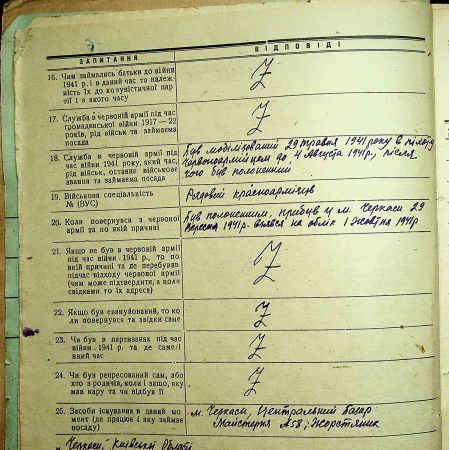 ЗАПИТАННЯ
ВІДПОВІДІ
16. Чим займались батьки до війни
1941 р. і в даний час та належ-
ність їх до комуністичної пар-
тії і з якого часу
Z
17. Служба в червоній армії під час
громадянської війни 1917—22
років, рід військ та займаєма
посада
Z
18. Служба в червоній армії під
час війни 1941 року, який час,
рід військ, останнє військове
звання та займаєма посада
Був мобілізований 29 травня 1941 року в
червоноармійцем до 4 Августа 1941 р., після
чого був полоненим
19. Військова спеціальність
№ (ВУС)
Рядовий красноармієць
20. Коли повернувся з червоної
армії та по якій причині
Був полоненим, прибув у м. Черкаси 29
Вересня 1941 р. взявся на облік 1 Жовтня 1941 р
21. Якщо не був в червоній армії
під час війни 1941 р., то по
якій причині та де перебував
підчас відходу червоної армії
(чим може підтвердити, а коли
свідками то їх адреса)
Z
22. Якщо був евакуйований, то ко-
ли повернувся та звідки саме
Z
23. Чи був в партизанах під час
війни 1941 р. та де саме і
який час
Z
24. Чи був репресований сам, або
хто з родичів, коли і защо, яку
мав кару та чи відбув її
Z
25. Засоби існування в даний мо-
мент (де працює і яку займає
посаду)
м. Черкаси, Центральний базар
Майстерня №58, Жерстяник
Черкаси, Київської Області